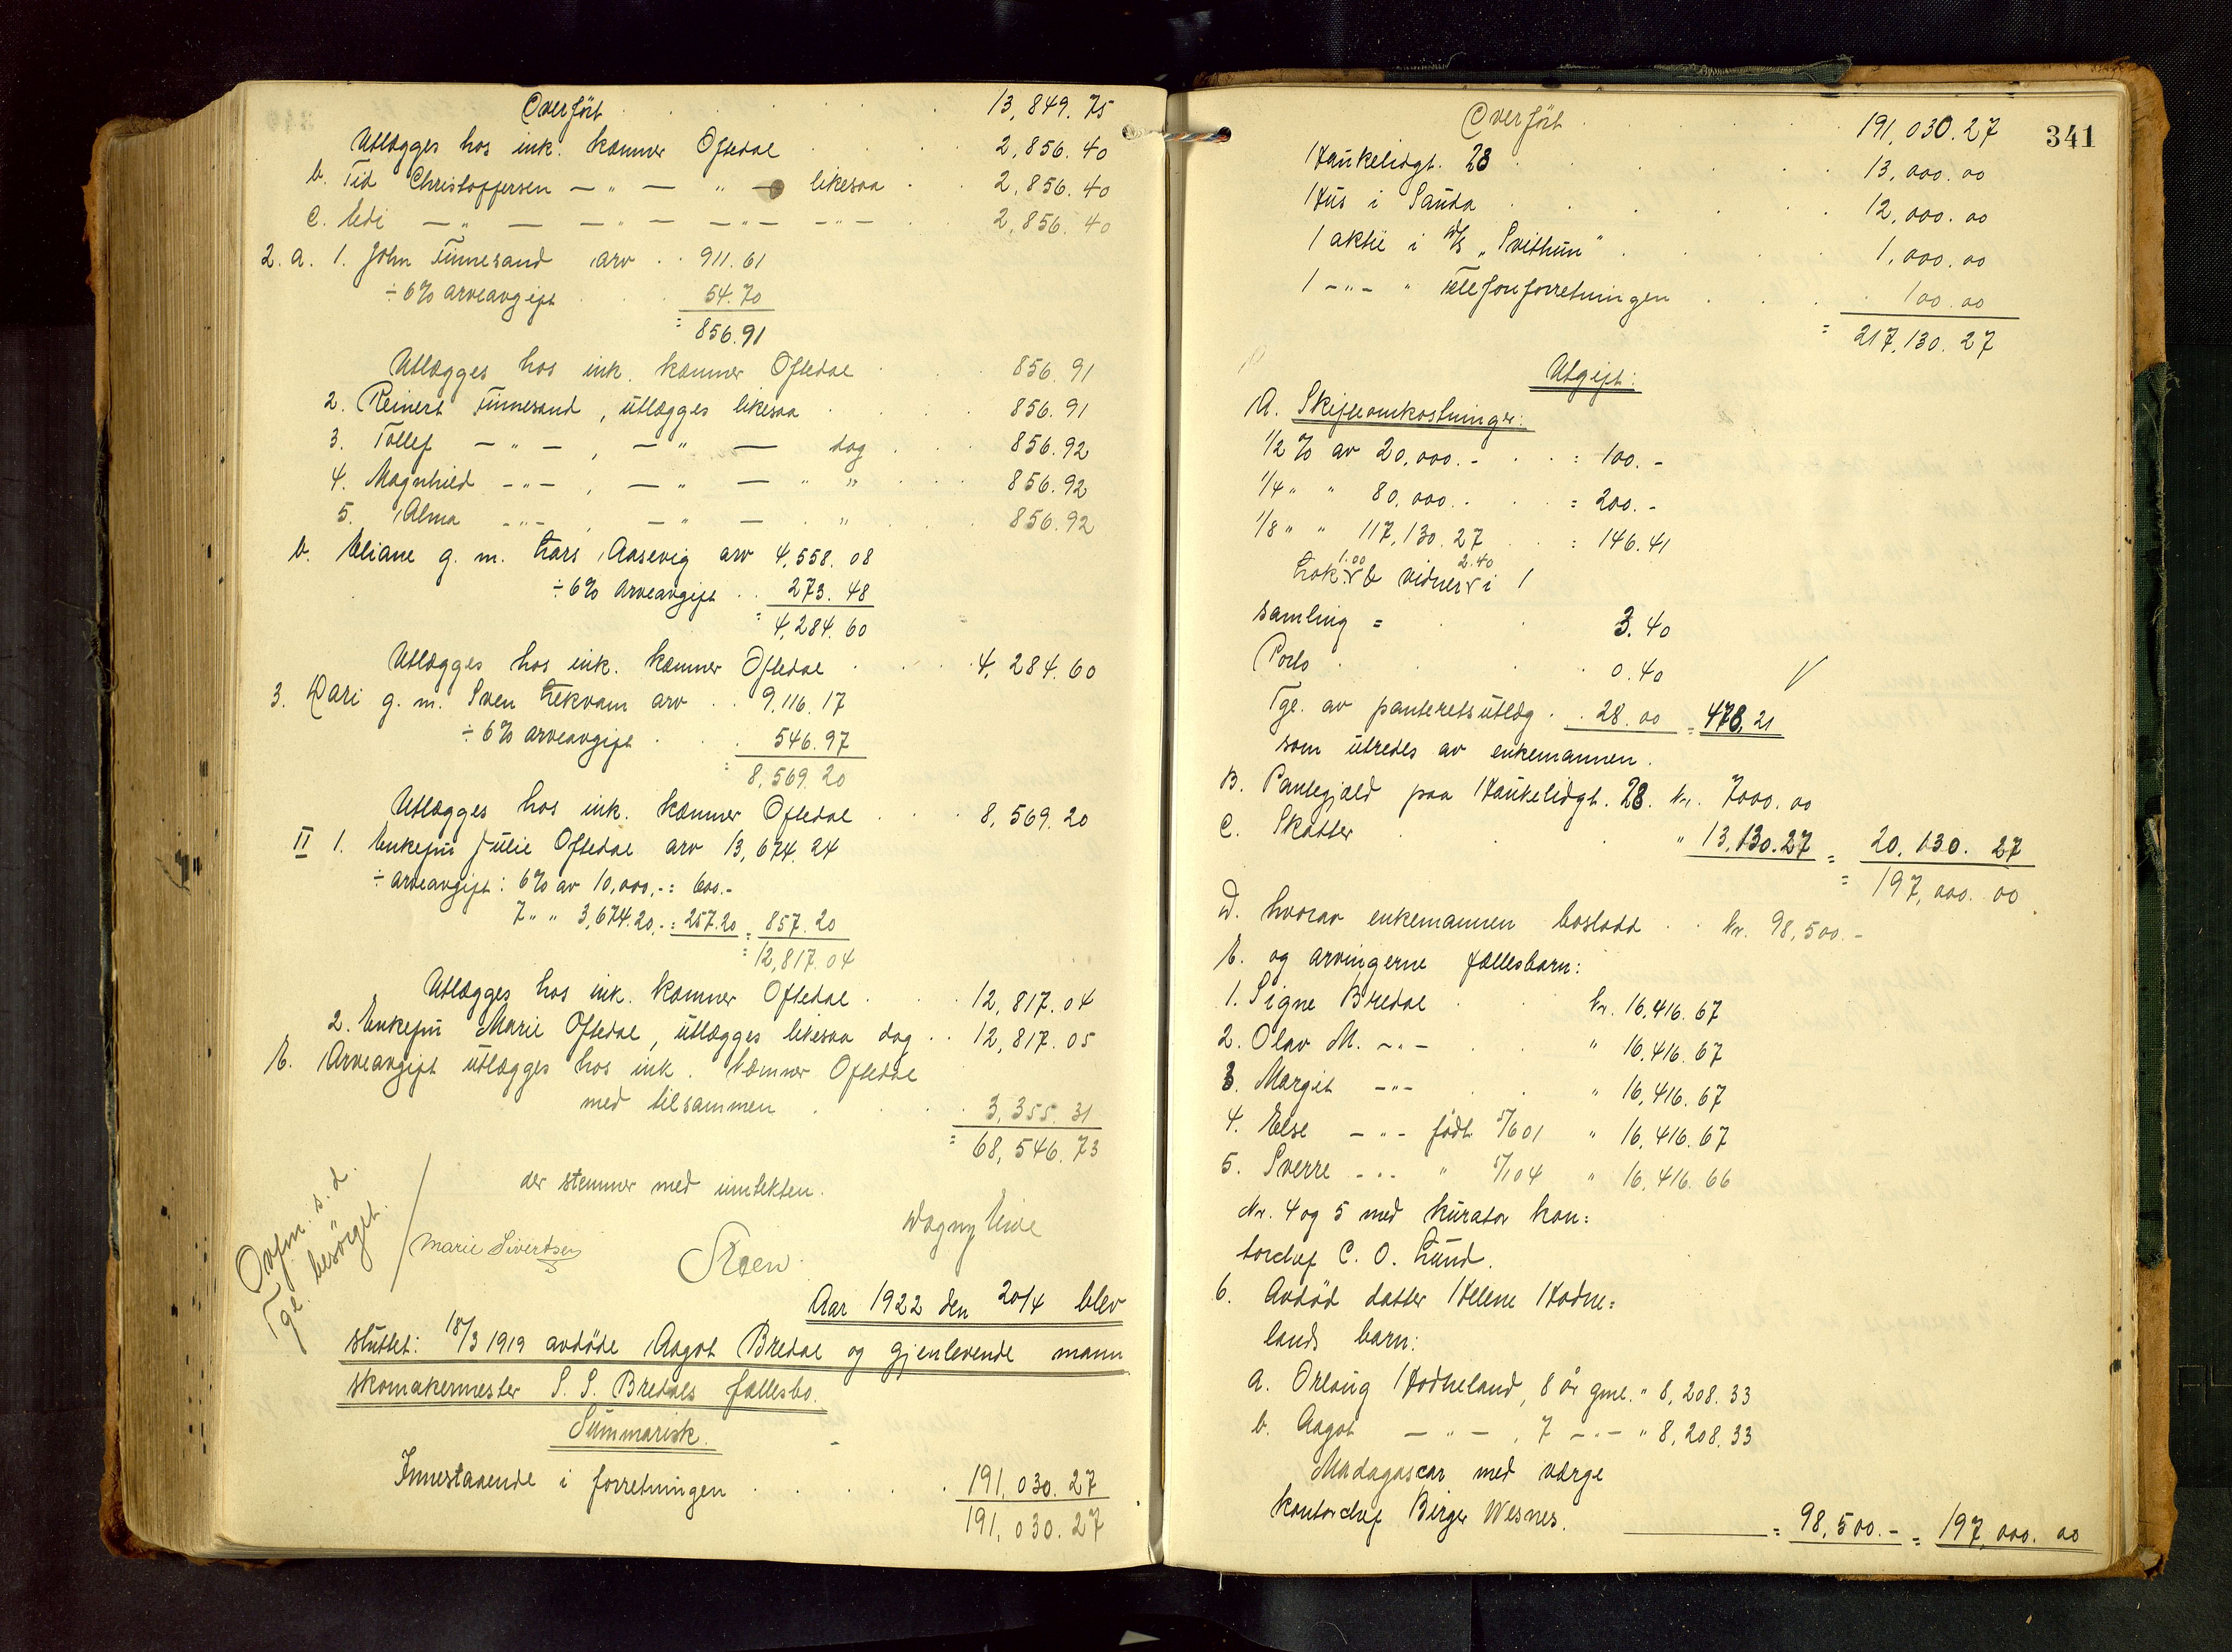 Overført . . . . . 13,849.75
Utlægges hos ink. kæmner Oftedal . . . 2,856.40
b. Tid Christoffersen — " — " — likesaa . . 2,856.40
c. Edi — " — — " — — " — — " — . . 2,856.40
2. a. 1. John Finnesand arv . . 911.61
÷ 6% arveavgift . . . 54.70
= 856.91
Utlægges hos ink. kæmner Oftedal . . . 856.91
2. Reinert Finnesand, utlægges likesaa . . . 856.91
3. Tollef — " — , — " — dog . . . 856.92
4. Magnhild — " — , — " — " " . . . 856.92
5. Alma — " — , — " — . " . . . 856.92
b. Eliane g. m. Lars Aasevig arv 4,558.08
÷ 6% Arveavgift . . 273.48
= 4,284.60
Utlægges hos ink. kæmner Oftedal . . . 4,284.60
3. Kari g. m. Sven Lekvam arv . . 9,116.17
÷ 6% arveavgift . . . 546.97
= 8,569.20
Utlægges hos ink. kæmner Oftedal . . . 8,569.20
II 1. Enkefru Julie Oftedal arv 13,674.24
÷ arveavgift: 6% av 10,000.- = 600.-
7 " " 3,674.20.- = 257.20 = 857.20
= 12,817.04
Utlægges hos ink. kæmner Oftedal . . . 12,817.04
2. Enkefru Marie Oftedal, utlægges likesaa dog . . 12,817.05
E. Arveavgift utlægges hos ink. kæmner Oftedal
med tilsammen . . . . 3,355.31
= 68,546.73
der stemmer med inntekten.
Ovfm. s. d.
Tgl. besørget.
Marie Sivertsen Steen. Dagny Eide
Aar 1922 den 20/4 blev
sluttet: 18/3 1919 avdøde Aagot Bredal og gjenlevende mann
skomakermester S. S. Bredals fællesbo.
Summarisk.
Innestaaende i forretningen . . . . . 191,030.27
191,030.27
341
Overført . . . . . 191,030.27
Haukelidgt. 28 . . . . . 13,000.00
Hus i Sauda . . . . . 12,000.00
1 aktie i D/S „Svithun" . . . . 1,000.00
1 — " — " Telefonforretningen . . . 100.00
= 217,130.27
Utgift:
A. Skifteomkostninger:
1/2 % av 20,000.- . . = 100.-
1/4 " " 80,000.- . . = 200.-
1/8 " " 117,130.27 . . = 146.41
Lok. 1.00 & vidner 2.40 i 1
samling = . . 3.40
Porto . . . 0.40
Tgl. av panteretsutlæg . . 28.00 = 478.21
som utredes av enkemannen.
B. Pantegjæld paa Haukelidgt. 28. kr. 7000.00
C. Skatter . . . " 13,130.27 = 20,130.27
= 197,000.00
D. hvorav enkemannen boslodd . . kr. 98,500.-
E. og arvingerne fællesbarn:
1. Signe Bredal . . kr. 16,416.67
2. Olav M. — " — . . " 16,416.67
3. Margit — " — . . " 16,416.67
4. Else — " — født 5/6 01 " 16,416.67
5. Sverre — " — " 5/1 04 " 16,416.66
Nr. 4 og 5 med kurator kon=
torchef C. O. Lund.
6. Avdød datter Helene Hodne=
lands barn:
a. Orlaug Hodneland, 8 år gml. " 8,208.33
b. Aagot — " — , 7 — " — " 8,208.33
Madagascar med værge
kontorchef Birger Wesnes. = 98,500.- = 197,000.00